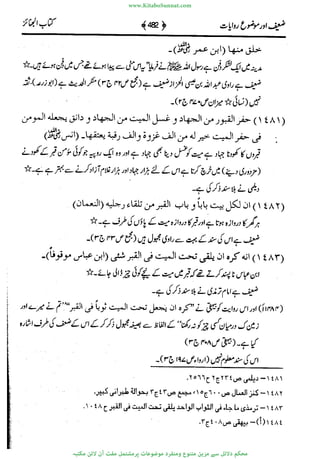 www.KitaboSunnat.com
ضعیف اور موضوع روایات ﴿ 482 ﴾ کتاب الجنائز
خلق منها (ابن عمر ؓ)۔
مدینہ میں ایک لشکر دفن ہے رسول اللہ ﷺ نے فرمایا یہ اس مٹی سے پیدا ہوئے ہیں۔☆
ضعیف ہے راوی عبداللہ بن عیسیٰ الخزاز ضعیف ہے (مجمع ص۴۲ ج۳) منکر الحدیث ہے (ابوزرعہ)، ثقہ
نہیں (نسائی☆میزان ص۴۷۰ ج۲)۔
(۱۴۸۱) حفر القبور من الجهاد و غسل الميت من الجهاد و دانق يجعله المومن
فى حفر الميت خير له من الف غزوة والف رقبة يعتقها۔ (انسؓ)
قبروں کا کھودنا جہاد ہے میت کو غسل دینا بھی جہاد ہے اور وہ ایک روپیہ جو کوئی مؤمن قبر کے کھودنے
میں خرچ کرتا ہے اس کے لئے ہزار جہاد اور ہزار غلام آزاد کرنے سے بہتر ہے۔☆
دیلمی نے بلا سند ذکر کی ہے۔
(۱۴۸۲) ان لكل بيت بابا و باب القبر من تلقاء رجليه (النعمان)
ہر گھر کا دروازہ ہوتا ہے اور قبر کا دروازہ میت کے پاؤں کی طرف ہے۔☆
ضعیف ہے اس کی سند کے بہت سے راوی مجہول ہیں (مجمع ص۴۳ ج۳)۔
(۱۴۸۳) انه كره ان يلقى تحت الميت فى القبر شئى (ابن عباس موقوفاً)۔
ابن عباس ناپسند کرتے تھے کہ قبر میں میت کے نیچے کوئی چیز ڈالی جائے۔☆
ضعیف ہے امام ترمذی نے بلا سند ذکر کی ہے۔
(۱۴۸۴) (أ) اور اس روایت کو بیہقی نے "كره ان يجعل تحت الميت ثوباً فى القبر"
زمین کے درمیان کوئی چیز نہ رکھنا" کے الفاظ سے بصیغہ مجہول ذکر کر کے اس کے ضعف کی طرف اشارہ
کیا ہے۔ (بیہقی ص۴۰۸ ج۳)
اس کی سند معلوم نہیں (ارواء ص۱۹۷ ج۳)۔
۱۴۸۱- دیلمی ص۲۳۴ ج۲ ح۲۵۶۶۔
۱۴۸۲- کنز العمال ص۶۰۰ ج۱۵، مجمع ص۴۳ ج۳ بحوالة طبرانی کبیر۔
۱۴۸۳- ترمذی ما جاء فی الثواب الواحد یلقی تحت المیت فی القبر ح۱۰۴۸۔
۱۴۸۴(أ)- بیهقی ص۴۰۸ ج۳۔
محکم دلائل سے مزین متنوع ومنفرد موضوعات پر مشتمل مفت آن لائن مکتبہ